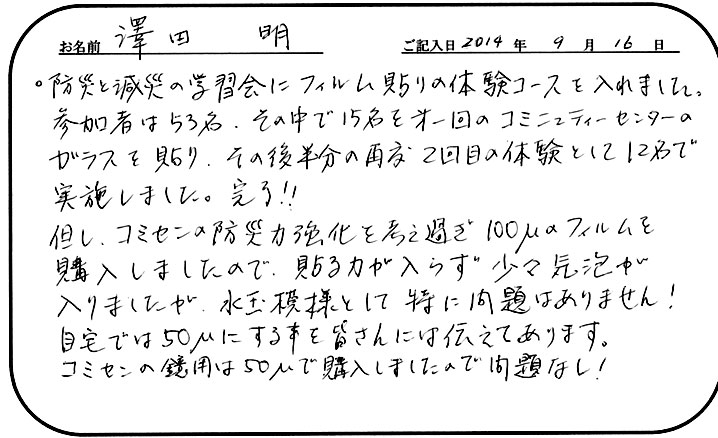 お名前 澤田 明 ご記入日 2014 年 9 月 16 日
。防災と減災の学習会にフィルム貼りの体験コースを入れました。
参加者は53名、その中で15名を第一回のコミニュティーセンターの
ガラスを貼り、その後半分の再度2回目の体験として12名で
実施しました。完了!!
但し、コミセンの防災力強化を考え過ぎ100μのフィルムを
購入しましたので、貼る力が入らず少々気泡が
入りましたが、水玉模様として特に問題はありません!
自宅では50μにする事を皆さんには伝えてあります。
コミセンの鏡用は50μで購入しましたので問題なし!